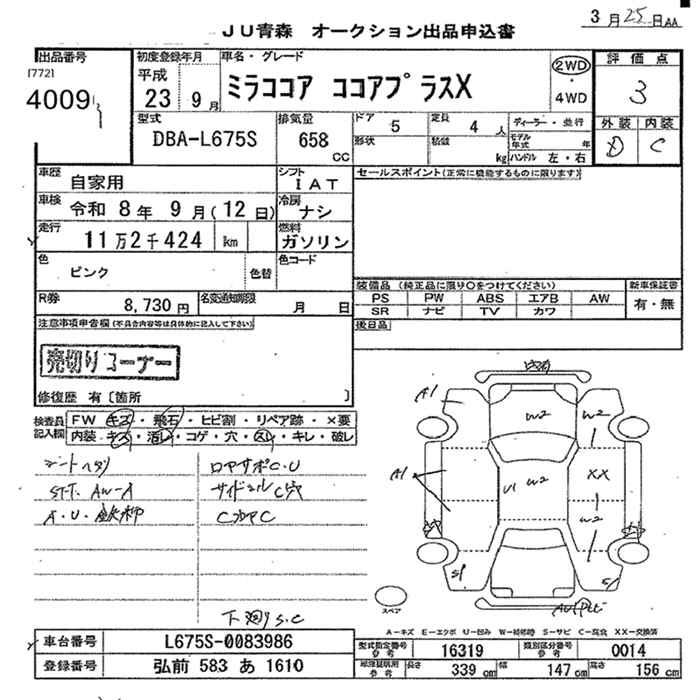 3月25日AA
JU青森 オークション出品申込書
出品番号
[772]
4009
初度登録年月
平成
23 9月
車名・グレード
ミラココア ココアプラスX
2WD
・
4WD
評価点
3
型式
DBA-L675S
排気量
658
CC
ドア
5
形状
定員
4人
積載
kg
ディーラー・並行
モデル年式 年
ハンドル 左・右
外装 内装
D C
車歴
自家用
シフト
IAT
セールスポイント(正常に機能するものに限ります)
車検
令和 8年 9月(12日)
冷房
ナシ
走行
11万2千424 km
燃料
ガソリン
色
ピンク
色替
色コード
装備品 (純正品に限り○をつけてください)
新車保証書
PS PW ABS エアB AW
有・無
SR ナビ TV カワ
R券
8,730円
名変通知期限
月 日
後日品
注意事項申告欄(不具合内容等は具体的に記入して下さい)
売切りコーナー
修復歴 有〔箇所 〕
検査員記入欄
FW キズ・飛石・ヒビ割・リペア跡・×要
内装・キズ・汚レ・コゲ・穴・スレ・キレ・破レ
シートヘタリ
ロアサポC.U
ST.T. AW-A
サイドシルC穴
C
下廻りS.C
A1
W2
W2
A1
U1
W2
XX
W2
S1
S1
スペア
A-キズ E-エクボ U-凹み W-補修跡 S-サビ C-腐食 XX-交換済
車台番号
L675S-0083986
登録番号
弘前 583 あ 1610
型式指定番号 参考
16319
類別区分番号 参考
0014
参考
長さ 339cm 幅 147cm 高さ 156cm